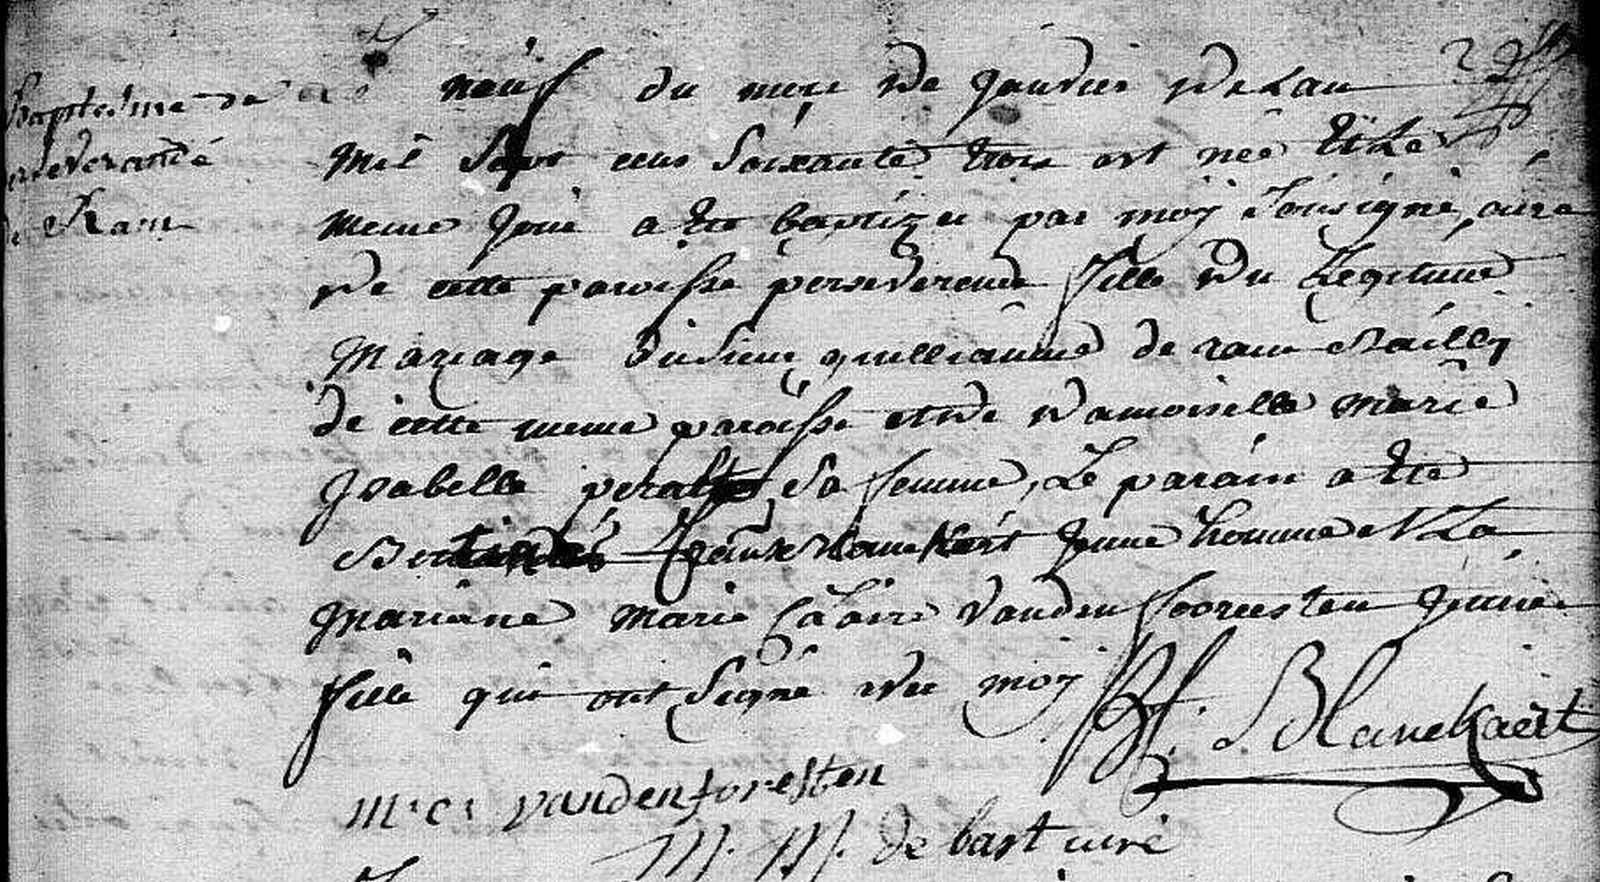 Baptesme de
perseverande
de Ram
Le neuf du mois de janvier de Lan
mil sept cens soixante trois est née et Le
meme jour a ete baptizee par moy sousigné curé
de cette paroisse perseverende fille du Legitime
mariage du sieur guilliaume de ram Bailly
de cette meme paroisse et de damoiselle marie
Isabelle sa femme, Le parain a ete
jeune homme et La
maraine marie Claire Vanden fooresten jeune
fille qui ont signé avec moy
J. Blanckaert
M: C: vandenforesten
M. M. de bast curé